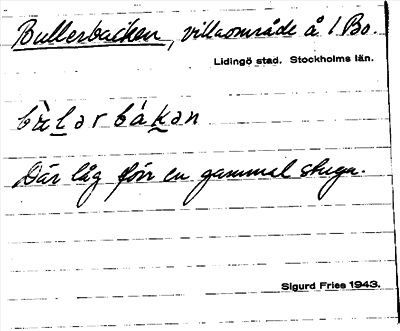 Bullerbacken, villaområde å 1 Bo.
Lidingö stad. Stockholms län.
bùlər bákən
Där låg förr en gammal stuga.
Sigurd Fries 1943.